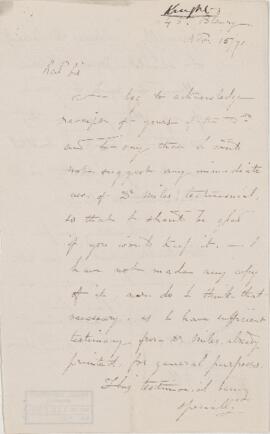 Knight
Nov. 15. 71
Revd Sir
I beg to acknowledge
receipt of yours of the
and to say there I wd
not suggest any immediate
use of Dr Miles testimonial,
so that I should be glad
if you would keep it. — I
have not made any copy
of it nor do I think that
necessary, as I have sufficient
testimony from Dr. Miles already
printed, for general purposes.
This testimonial being
specially